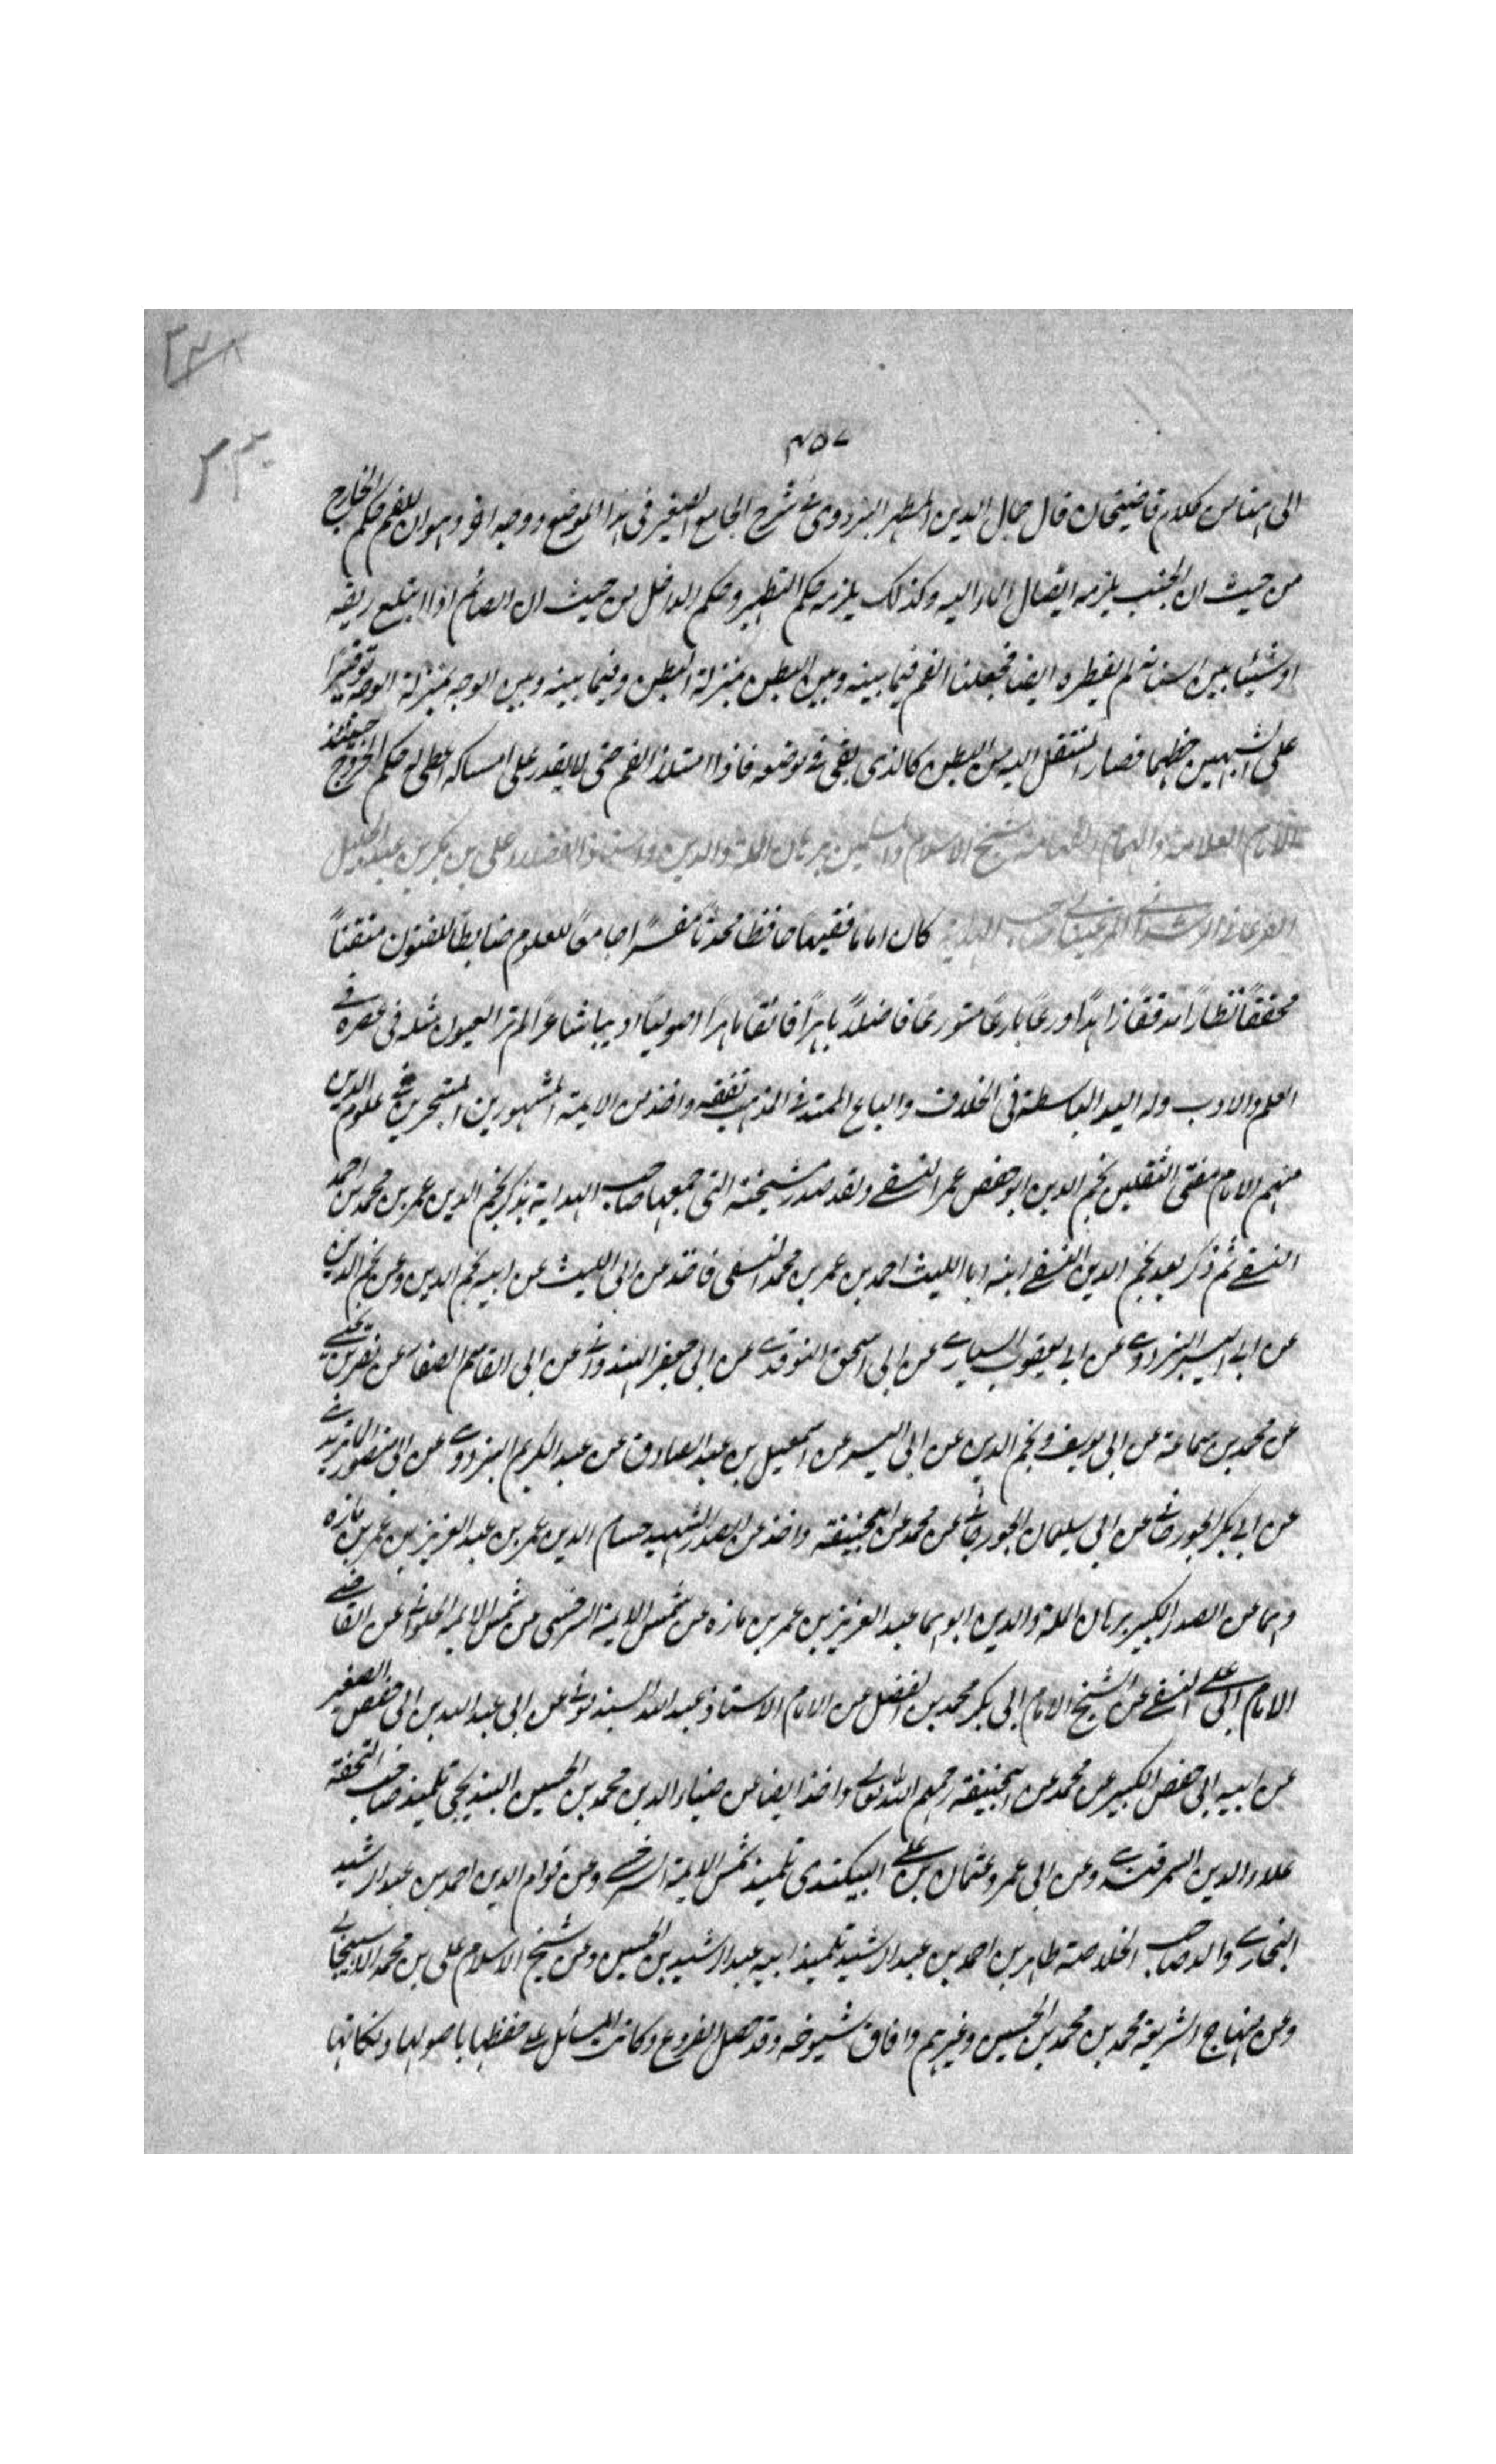 ٤٥٧
الى هنا من كلام قاضيخان قال جمال الدين المطهر البزدوى فى شرح الجامع الصغير فى هذا الموضع ووجه اخر وهو ان للفم حكم الخارج
من حيث ان الجنب يلزمه ايصال الماء اليه وكذلك يلزمه حكم التطهير وحكم الداخل من حيث ان الصائم اذا ابتلع ريقه
او شيئا بين اسنانه لم يفطره ايضا فجعلنا الفم فيما بينه وبين البطن بمنزلة البطن وفيما بينه وبين الوجه بمنزلة الوجه توفيرا
على الشبهين حظهما فصار المنتقل اليه من البطن كالذى بقى فى موضعه فاذا امتلأ الفم حتى لا يقدر على امساكه اعطى له حكم الخروج حينئذ
الامام العلامة والهمام الفهامة شيخ الاسلام والمسلمين برهان الملة والدين على بن ابى بكر بن عبد الجليل
الفرغانى الرشدانى المرغينانى صاحب الهداية كان اماما فقيها حافظا محدثا مفسرا جامعا للعلوم ضابطا للفنون متقنا
محققا نظارا مدققا زاهدا ورعا بارعا متورعا فاضلا باهرا فائقا ماهرا اصوليا اديبا شاعرا لم تر العيون مثله فى عصره فى
العلم والادب وله اليد الباسطة فى الخلاف والباع الممتد فى المذهب تفقه واخذ من الايمة المشهورين المتبحرين فى علوم الدين
منهم الامام مفتى الثقلين نجم الدين ابو حفص عمر النسفى ولقد صدر مشيخته التى جمعها صاحب الهداية بذكر نجم الدين عمر بن محمد بن احمد
النسفى ثم ذكر بعد نجم الدين النسفى ابنه ابا الليث احمد بن عمر بن محمد النسفى فاخذ عن ابى الليث عن ابيه نجم الدين وعن نجم الدين
عن ابى اليسر البزدوى عن ابى يعقوب السيارى عن ابى اسحق النوقدى عن ابى جعفر الهندوانى عن ابى القاسم الصفار عن نصر بن يحيى
عن محمد بن سماعة عن ابى يوسف ونجم الدين عن ابى اليسر عن اسمعيل بن عبد الصادق عن عبد الكريم البزدوى عن ابى منصور الماتريدى
عن ابى بكر الجوزجانى عن ابى سليمان الجوزجانى عن محمد عن ابيحنيفة واخذ عن الصدر الشهيد حسام الدين عمر بن عبد العزيز بن عمر بن مازه
وهما عن الصدر الكبير برهان الملة والدين ابوهما عبد العزيز بن عمر بن مازه عن شمس الايمة السرخسى عن شمس الايمة الحلوانى عن القاضى
الامام ابى على النسفى عن الشيخ الامام ابى بكر محمد بن الفضل عن الامام الاستاذ عبد الله السبذمونى عن ابى عبد الله بن ابى حفص الصغير
عن ابيه ابى حفص الكبير عن محمد عن ابيحنيفة رحمهم الله تعالى واخذ ايضا من ضياء الدين محمد بن الحسين البندنيجى تلميذ صاحب التحفة
علاء الدين السمرقندى وعن ابى عمرو عثمان بن على البيكندى تلميذ شمس الايمة السرخسى وعن قوام الدين احمد بن عبد الرشيد
البخارى والد صاحب الخلاصة طاهر بن احمد بن عبد الرشيد تلميذ ابيه عبد الرشيد بن الحسين وعن شيخ الاسلام على بن محمد الاسبيجابى
وعن منهاج الشريعة محمد بن محمد بن الحسين وغيرهم وافاق شيوخه وقد حصل الفروع وكانت المسائل على حفظها باصولها